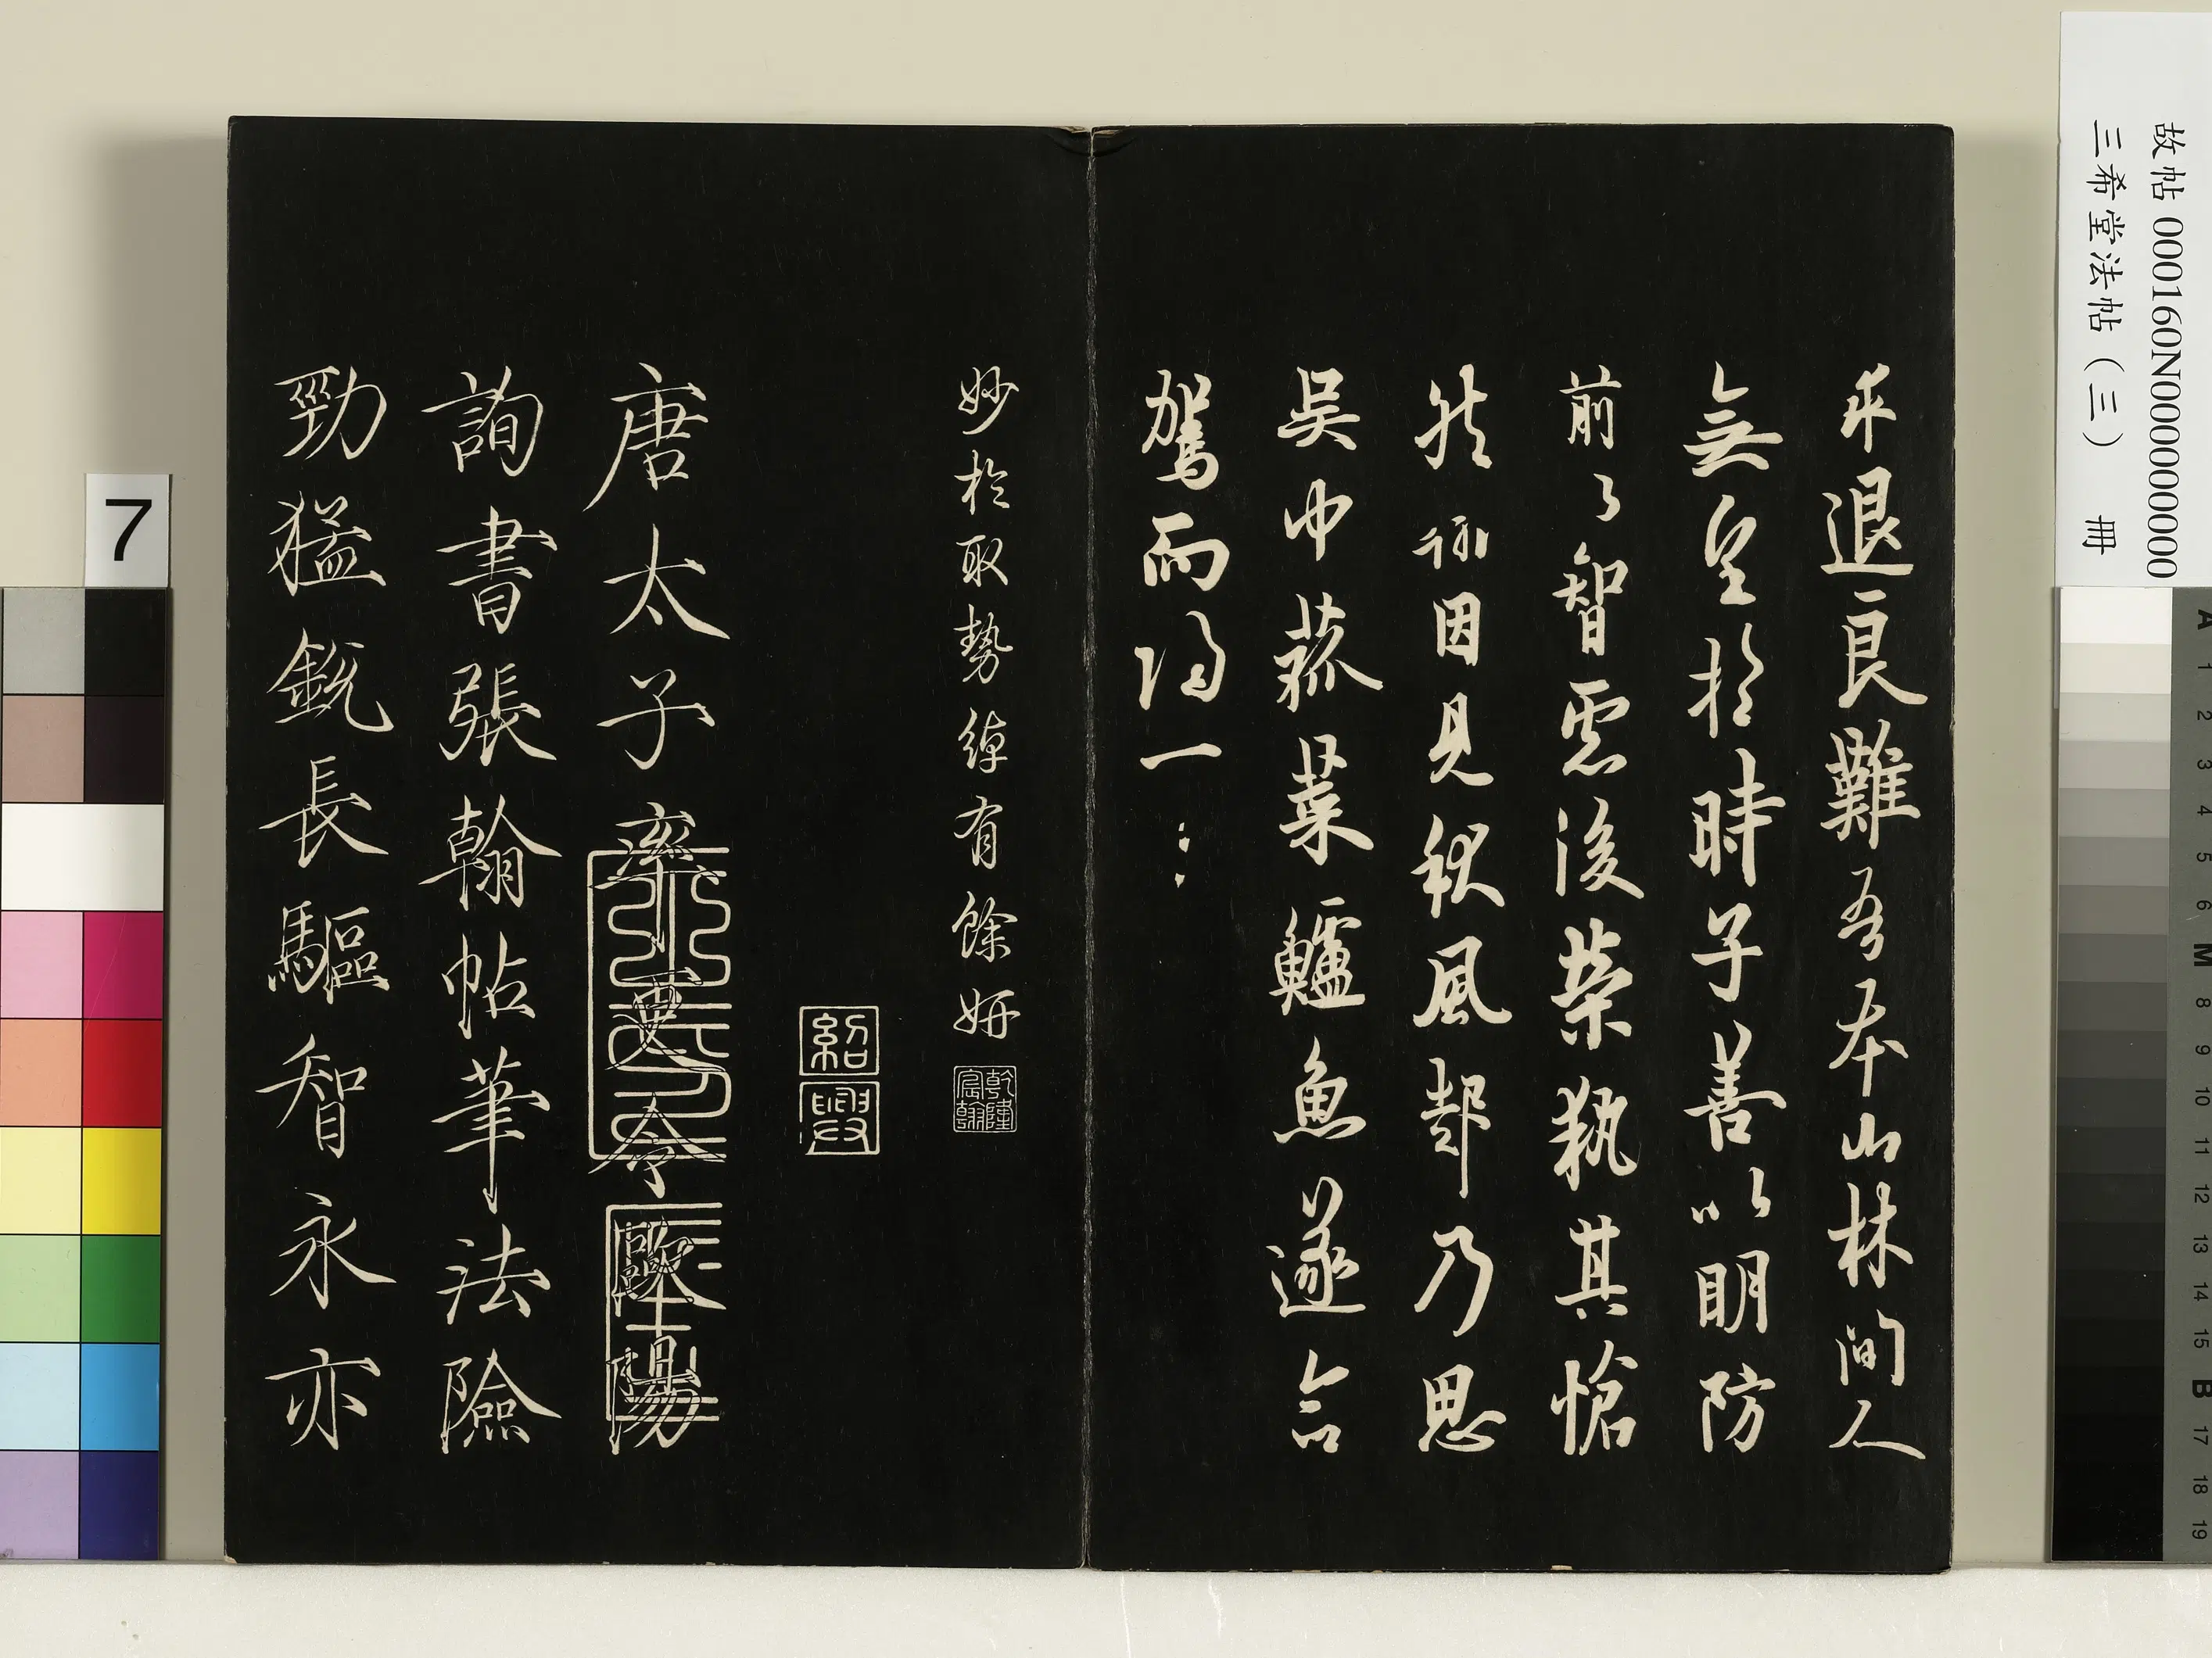 求退良難吾本山林間人
無望於時子善以明防
前以智慮後榮執其愴
然翰因見秋風起乃思
吳中菰菜鱸魚遂命
駕而歸
妙於取勢綽有餘妍
乾隆宸翰
紹興
唐太子率更令歐陽
詢書張翰帖筆法險
勁猛銳長驅智永亦
故帖 000160N000000000
三希堂法帖（三） 冊
7
A 1 2 3 4 5 6 M 8 9 10 11 12 13 14 15 B 17 18 19